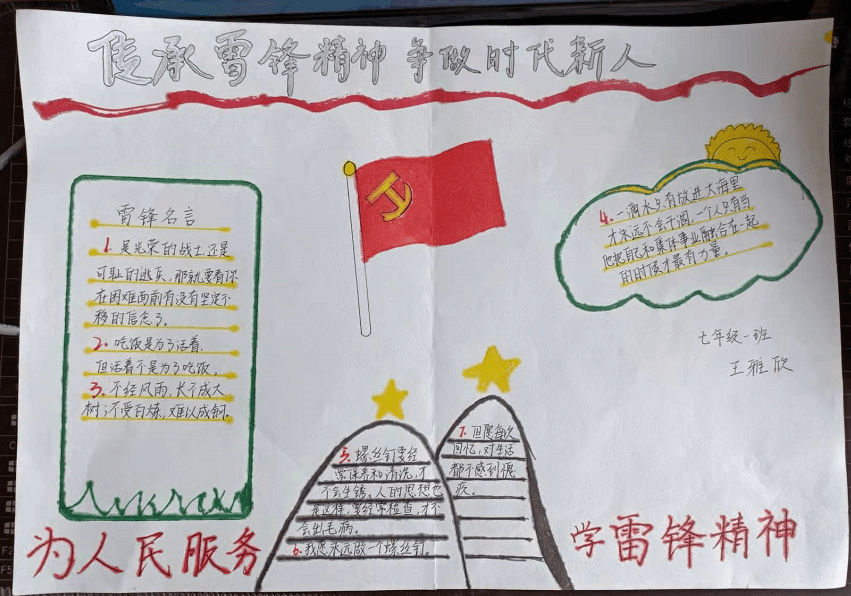 传承雷锋精神 争做时代新人
雷锋名言
1. 是光荣的战士还是
可耻的逃兵,那就要看你
在困难面前有没有坚定不
移的信念了。
2. 吃饭是为了活着,
但活着不是为了吃饭。
3. 不经风雨,长不成大
树;不受百炼,难以成钢。
4. 一滴水只有放进大海里
才永远不会干涸,一个人只有当
他把自己和集体事业融合在一起
的时候才最有力量。
七年级一班
王雅欣
5. 螺丝钉要经
常保养和清洗,才
不会生锈。人的思想也
是这样,要经常检查,才不
会出毛病。
6. 我愿永远做一个螺丝钉。
7. 但愿每次
回忆,对生活
都不感到愧
疚。
为人民服务
学雷锋精神